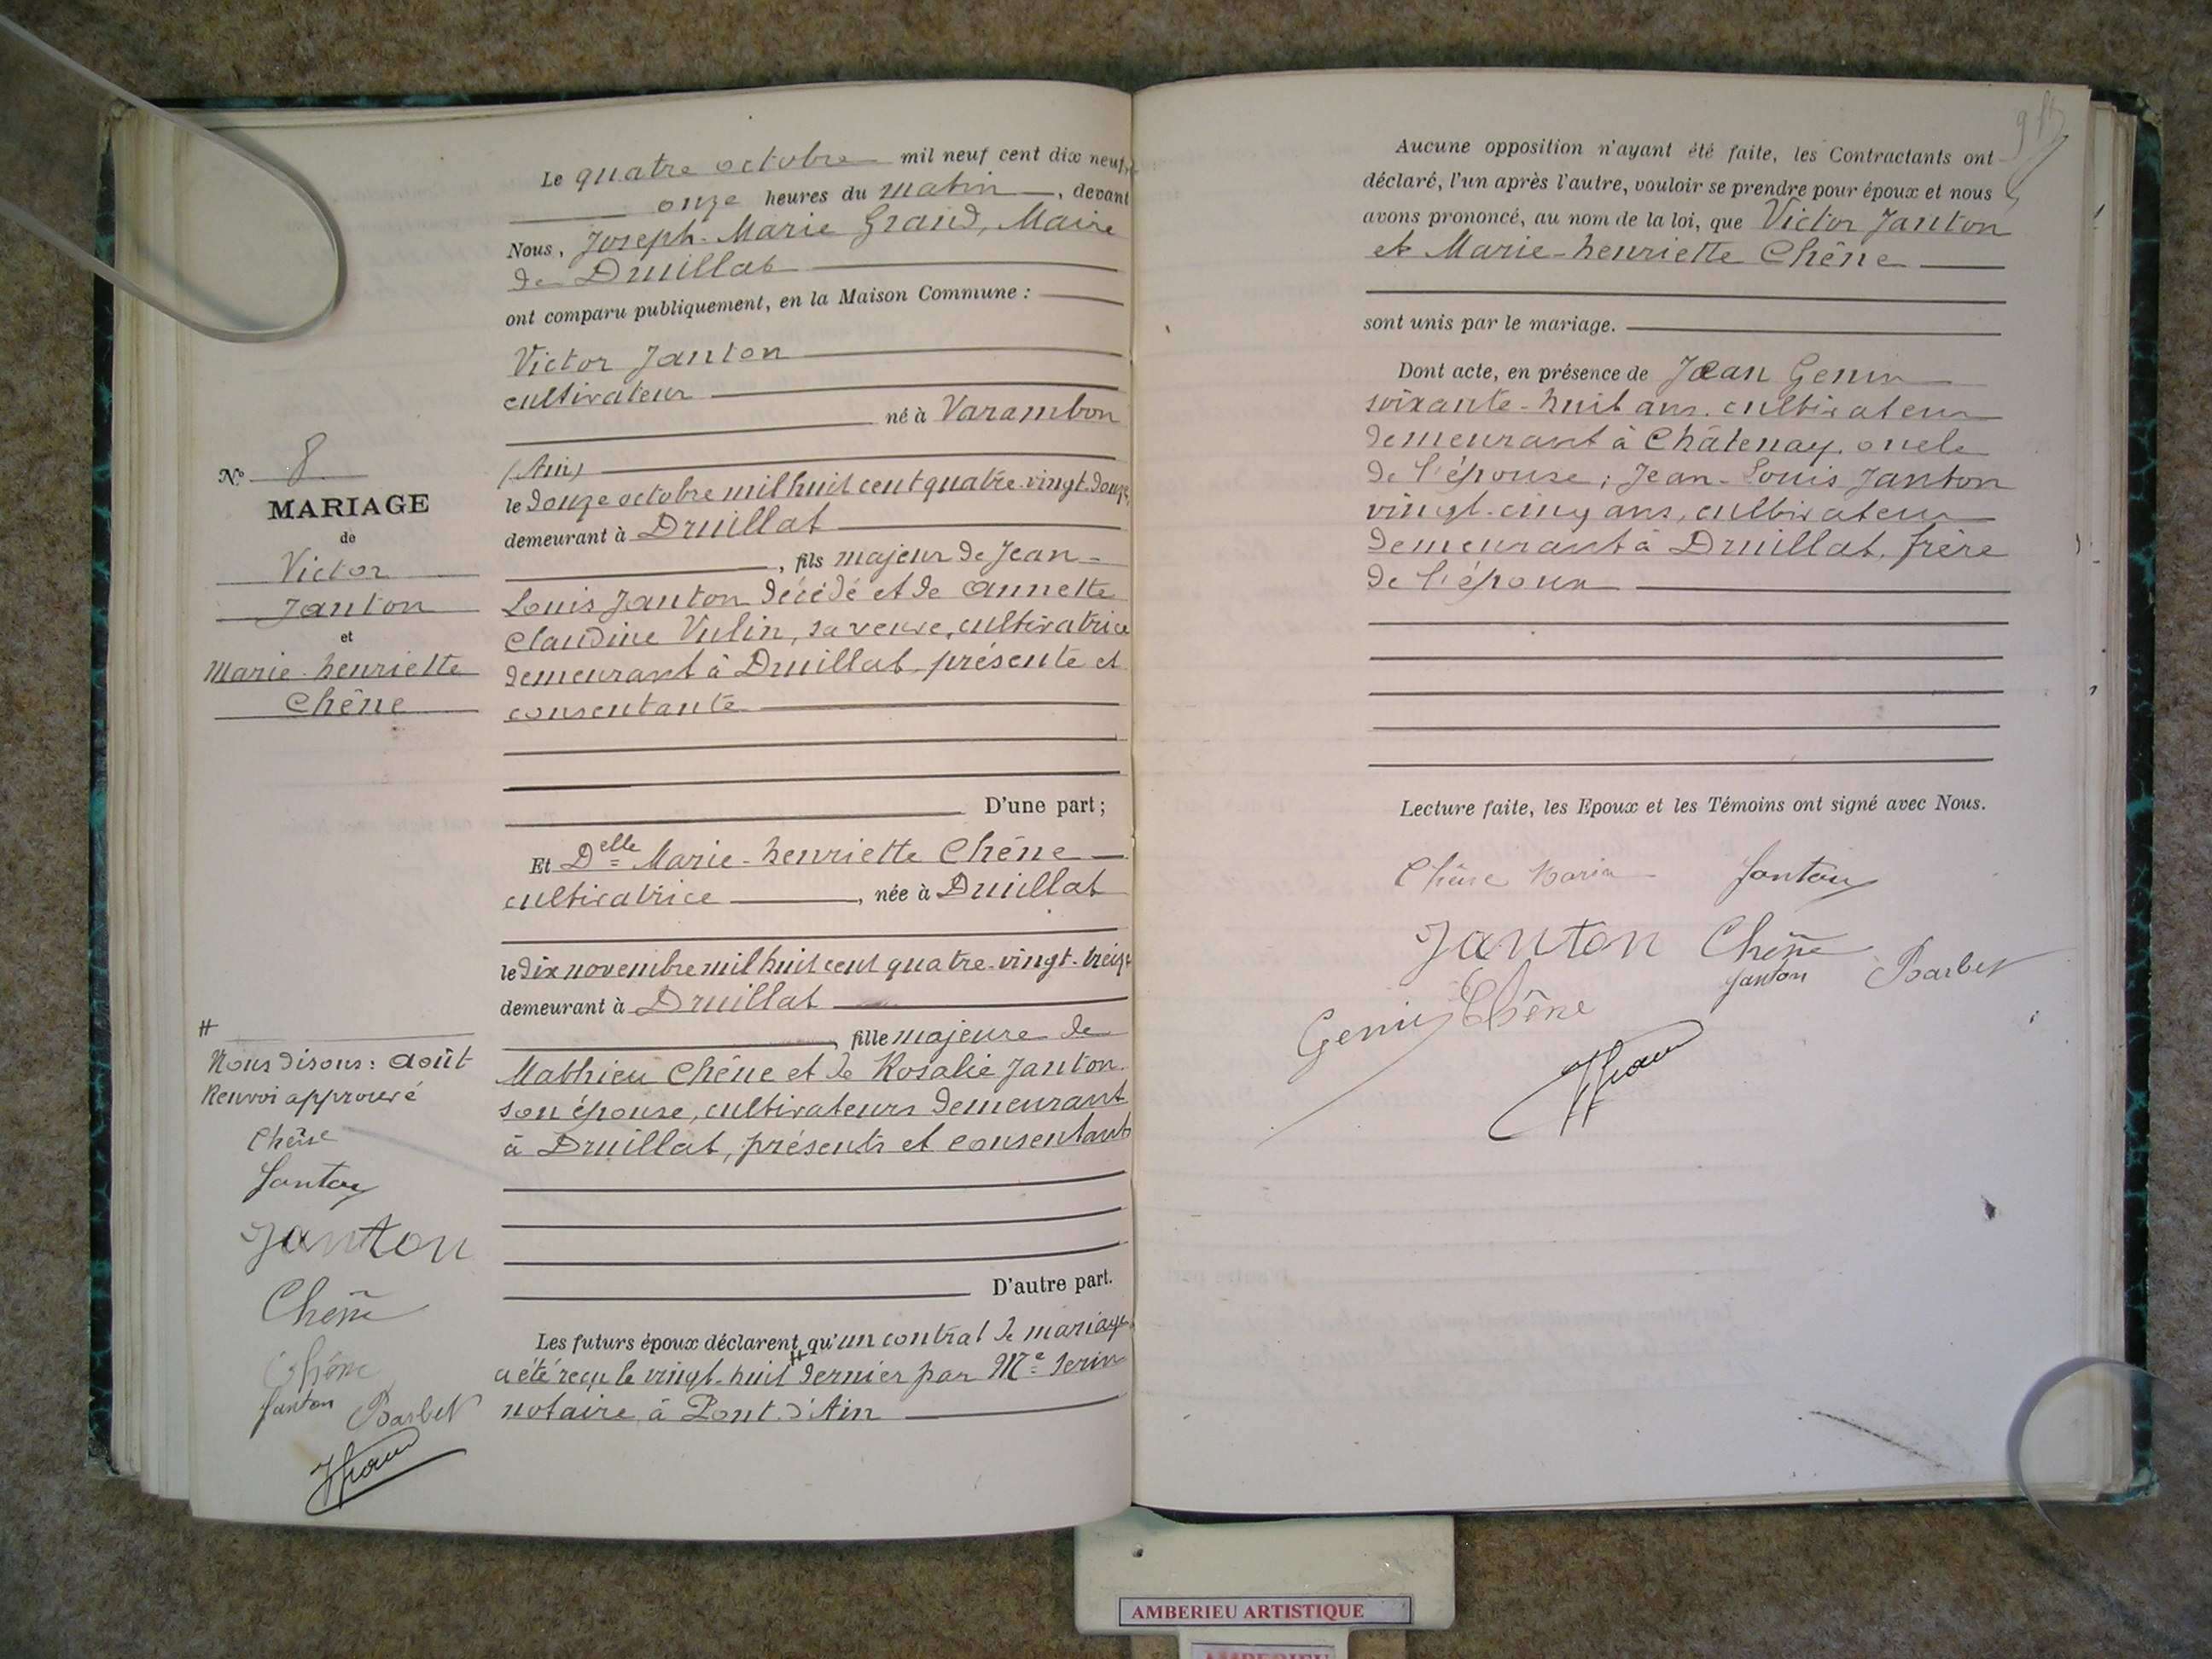 N° 8
MARIAGE
de
Victor
Janton
et
Marie-henriette
Chêne
#
Nous disons : août
Renvoi approuvé
Chêne
Janton
Janton
Chêne
Chêne
Janton Barbet
Le quatre octobre mil neuf cent dix neuf,
onze heures du matin, devant
Nous, Joseph-Marie Grand, Maire
de Druillat
ont comparu publiquement, en la Maison Commune :
Victor Janton
cultivateur
né à Varambon
(Ain)
le douze octobre mil huit cent quatre-vingt-douze,
demeurant à Druillat
, fils majeur de Jean-
Louis Janton décédé et de Annette
Claudine Vulin, sa veuve, cultivatrice
demeurant à Druillat, présente et
consentante
D'une part ;
Et Delle Marie-henriette Chêne
cultivatrice, née à Druillat
le dix novembre mil huit cent quatre-vingt-treize
demeurant à Druillat
, fille majeure de
Mathieu Chêne et de Rosalie Janton
son épouse, cultivateurs demeurant
à Druillat, présents et consentants
D'autre part.
Les futurs époux déclarent qu'un contrat de mariage
a été reçu le vingt-huit # dernier par Me Serin
notaire à Pont-d'Ain
Aucune opposition n'ayant été faite, les Contractants ont
déclaré, l'un après l'autre, vouloir se prendre pour époux et nous
avons prononcé, au nom de la loi, que Victor Janton
et Marie-henriette Chêne
sont unis par le mariage.
Dont acte, en présence de Jean Genin
soixante-huit ans, cultivateur
demeurant à Châtenay, oncle
de l'épouse ; Jean-Louis Janton
vingt-cinq ans, cultivateur
demeurant à Druillat, frère
de l'époux
Lecture faite, les Epoux et les Témoins ont signé avec Nous.
Chêne Janton
Janton Chêne
Janton Barbet
Genin Chêne
AMBERIEU ARTISTIQUE
AMBERIEU